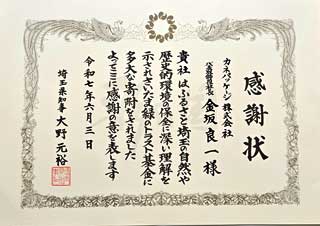 感謝状
カネパッケージ株式会社
代表取締役社長 金坂良一様
貴社はふるさと埼玉の自然や
歴史的環境の保全に深い理解を
示されさいたま緑のトラスト基金に
多大な寄附をされました
よってここに感謝の意を表します
令和七年六月三日
埼玉県知事 大野元裕